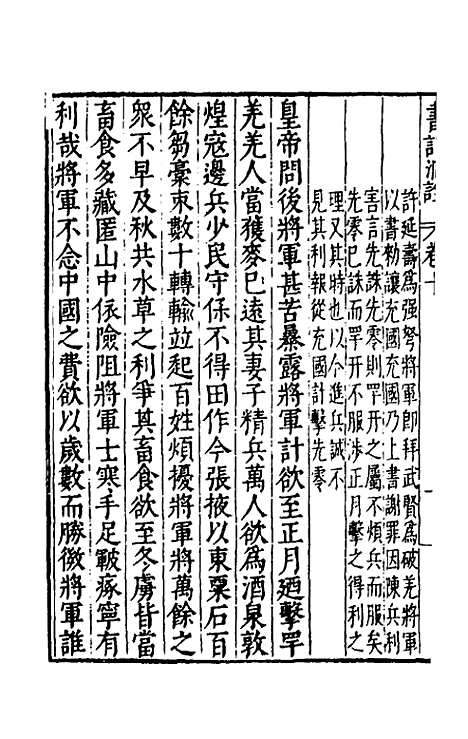 書記洞詮 卷十
許延壽爲强弩將軍即拜武賢爲破羌將軍
以書勑讓充國充國乃上書謝罪因陳兵利
害言先誅先零則罕幵之屬不煩兵而服矣
先零已誅而罕幵不服涉正月擊之得利之
理又其時也以今進兵誠不
見其利報從充國計擊先零
皇帝問後將軍甚苦暴露將軍計欲至正月廼擊罕
羌羌人當獲麥已遠其妻子精兵萬人欲爲酒泉敦
煌寇邊兵少民守保不得田作今張掖以東粟石百
餘芻藁束數十轉輸並起百姓煩擾將軍將萬餘之
衆不早及秋共水草之利爭其畜食欲至冬虜皆當
畜食多藏匿山中依險阻將軍士寒手足皸瘃寧有
利哉將軍不念中國之費欲以歲數而勝微將軍誰